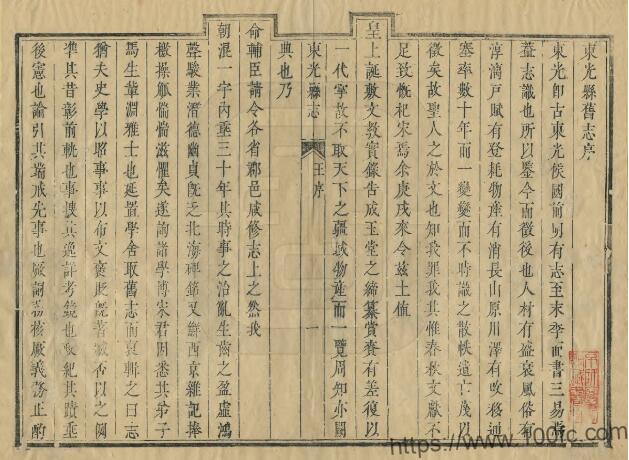 東光縣舊志序
東光即古東光侯國前明有志至末季而書三易焉
蓋志識也所以鑒今而徵後也人材有盛衰風俗有
淳漓戶賦有登耗物產有消長山原川澤有改移通
塞率數十年而一變變而不時識之散帙遺亡茂以
徵矣故聖人之於文也知我罪我其惟春秋文獻不
足致慨杞宋焉余庚戌來令茲土值
皇上誕敷文教實錄告成玉堂之締纂賞賚有差復以
一代寧故不取天下之疆域物產而一覽周知亦闕
東光縣志
王序
一
典也乃
命輔臣請令各省郡邑咸修志上之然我
朝混一宇內垂三十年其時事之治亂生齒之盈虛鴻
聲駿業潛德幽貞既乏北海裨錦又鮮西京雜記捧
檄操觚惴惴滋懼矣遂詢諸學博宋君因悉其步子
馬生輩淵雅士也延置學舍取舊志而裒輯之曰志
猶夫史學以昭事事以布文褒貶既著臧否以之闕
準其昔彰前軌也事搜其逸詳考鏡也政紀其蹟垂
後憲也論引其端戒先事也敘詞務核厥義務止酌
https://www.100tc.com